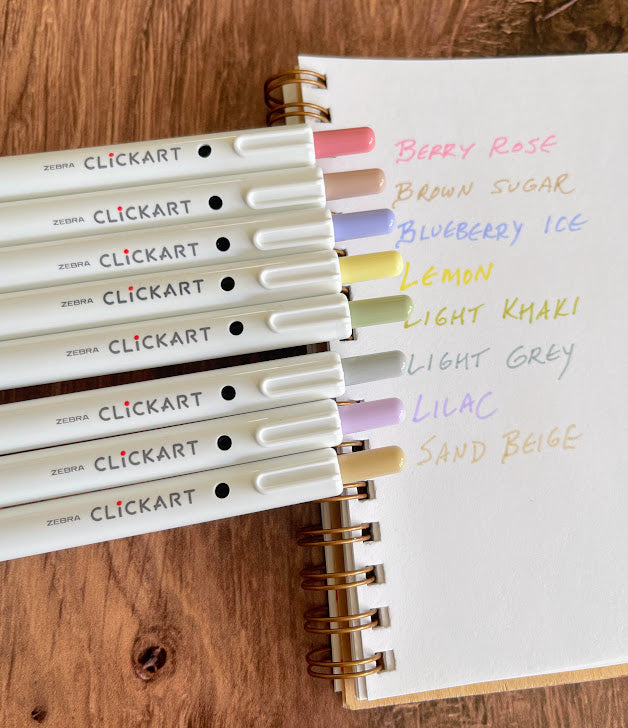 ZEBRA CLiCKART
BERRY ROSE
ZEBRA CLiCKART
BROWN SUGAR
ZEBRA CLiCKART
BLUEBERRY ICE
ZEBRA CLiCKART
LEMON
ZEBRA CLiCKART
LIGHT KHAKI
ZEBRA CLiCKART
LIGHT GREY
ZEBRA CLiCKART
LILAC
ZEBRA CLiCKART
SAND BEIGE